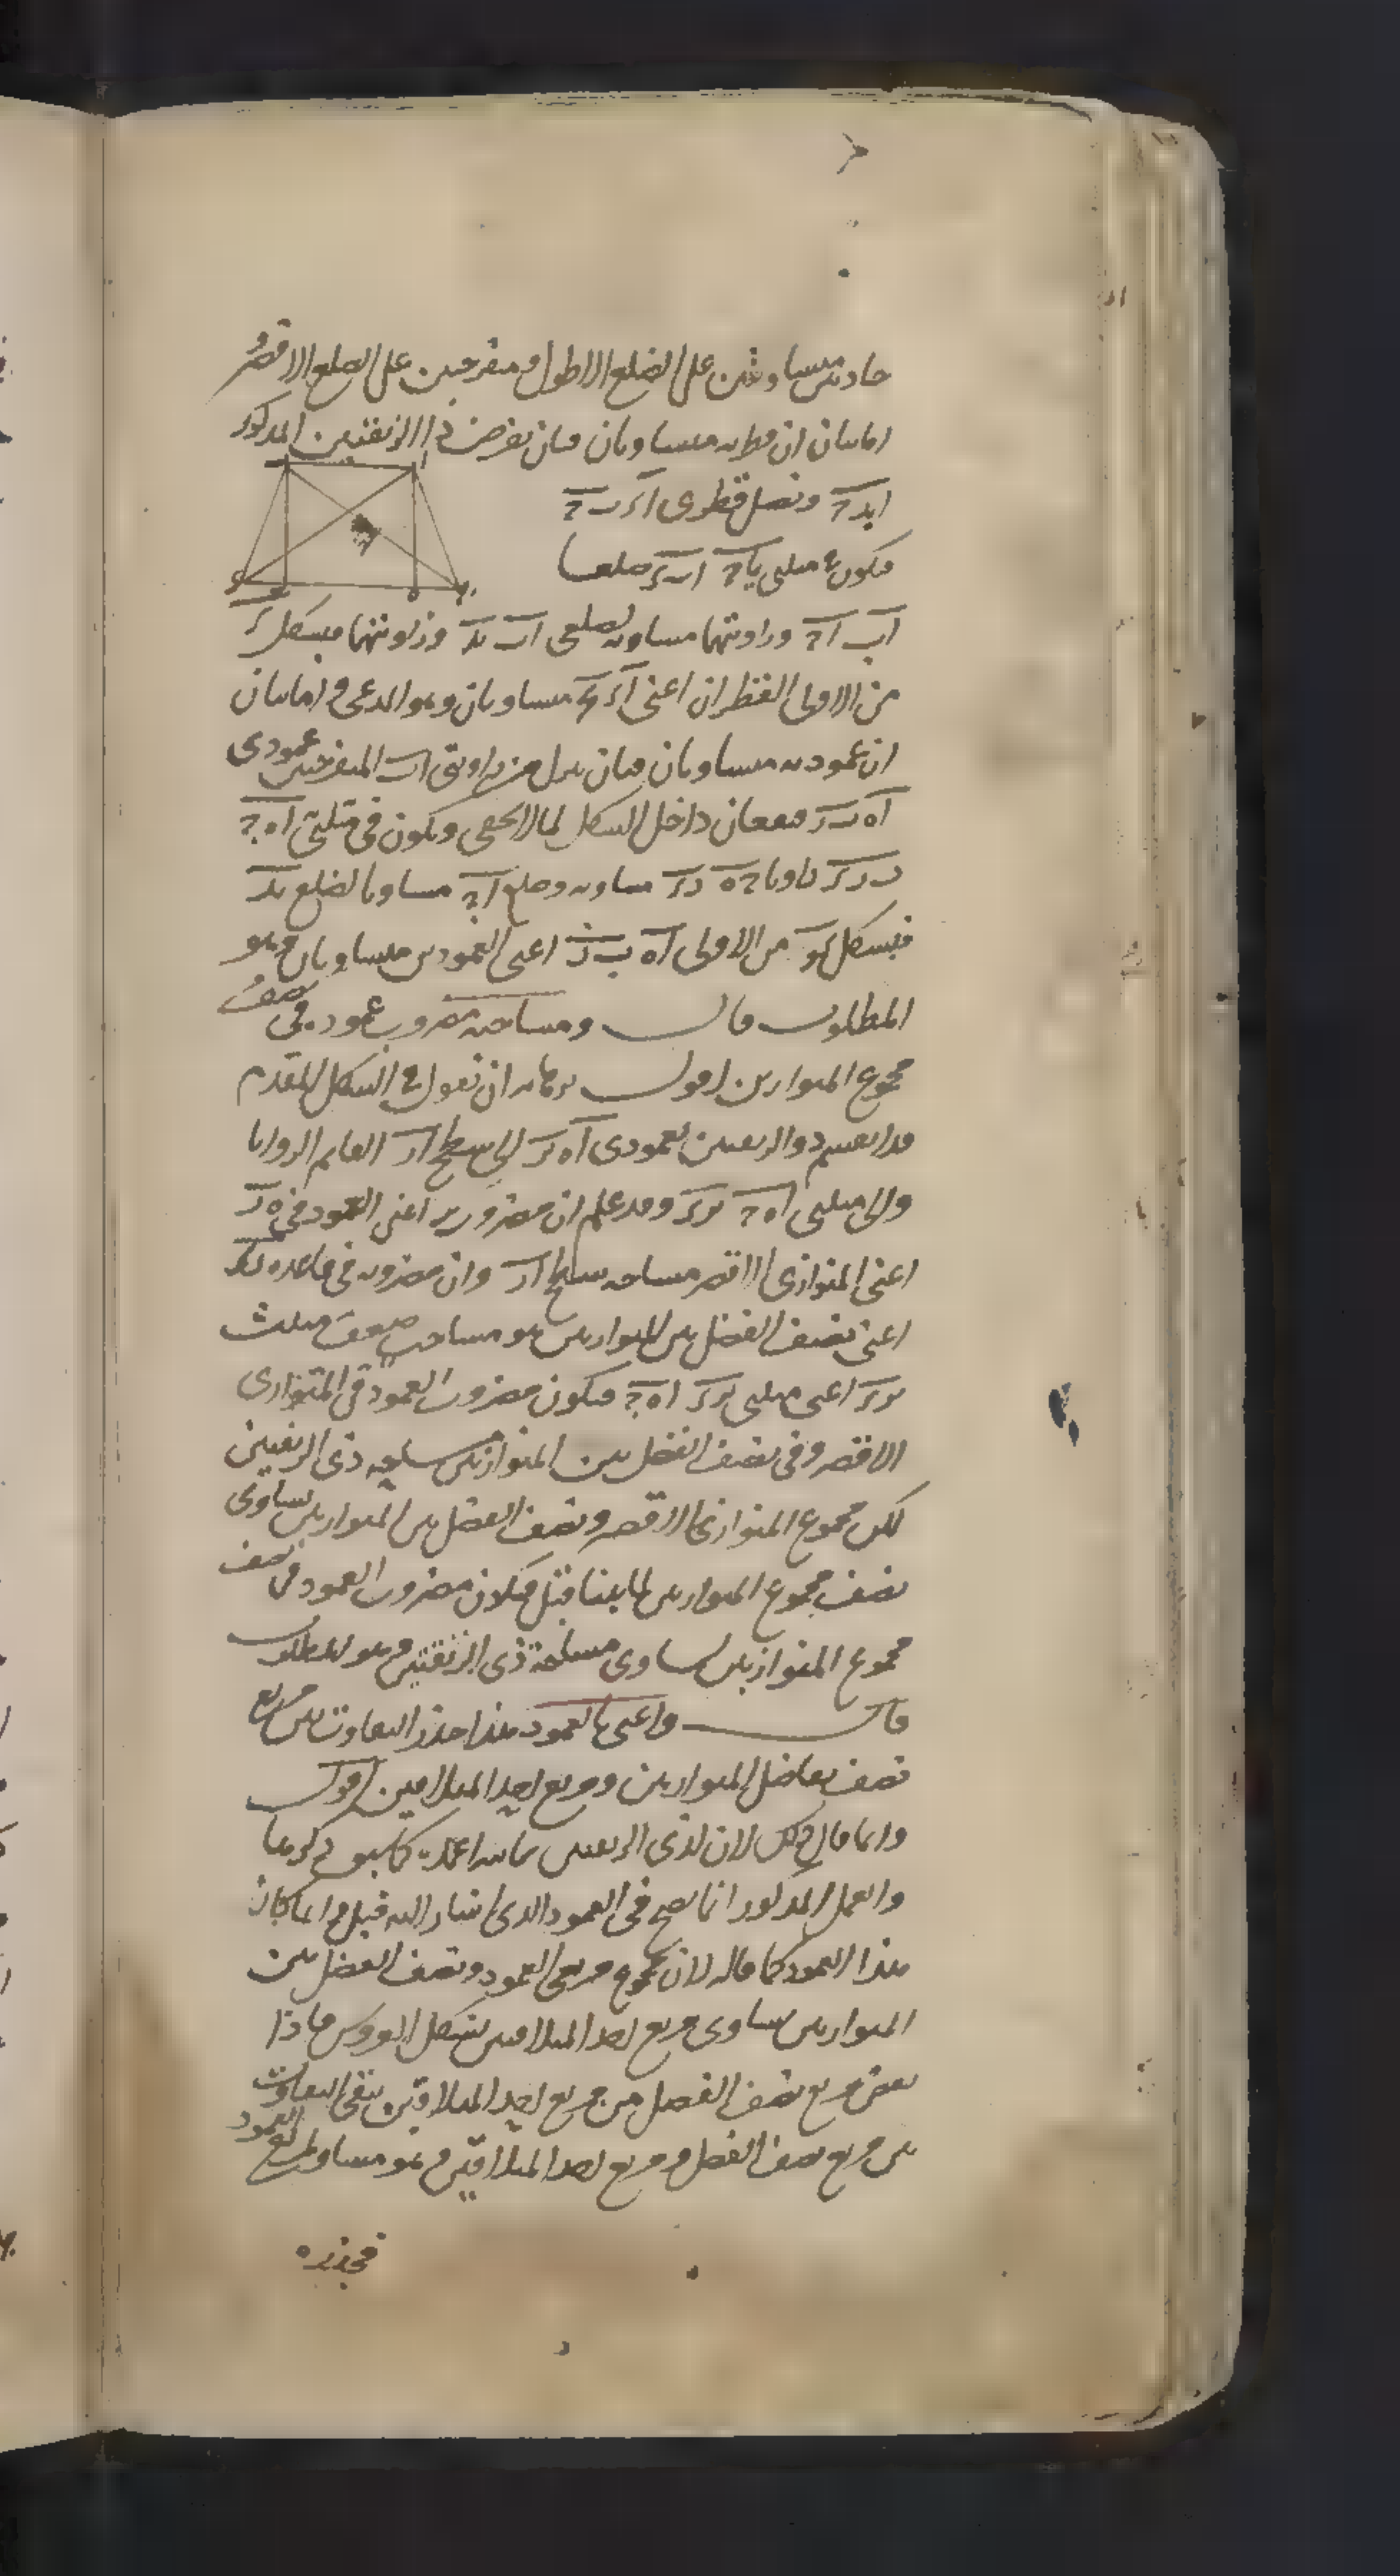 حادتين متساويتين على الضلع الاطول ومنفرجتين على الضلع الاقصر و
اما بيان ان قطريه متساويان فبان نفرض ذا الزنقتين المذكور
ابدح ونصل قطرى اد ب ح
فيكون فى مثلثى باح ابد ضلعا
اب اح وزاويتهما مساوية لضلعى اب بد وزاويتهما فبشكل د
من الاولى القطران اعنى اد بح متساويان وهو المدعى واما بيان
ان عموديه متساويان فبان ننزل من زاويتى اب المنفرجتين عمودى
اه بر فيقعان داخل الشكل لما لا يخفى ويكون فى مثلثى اه ح
ب ر د زاويتا ح ه ر د متساوية وضلع اح مساويا لضلع بد
فبشكل كو من الاولى اه ب ر اعنى العمودين متساويان وهو
المطلوب قال ومساحته مضروب عمود فى نصف
مجموع المتوازيين اقول برهانه ان نقول فى الشكل المتقدم
قد انقسم ذو الزنقتين بعمودى اه بر الى سطح ار القائم الزوايا
والى مثلثى اه ح برد وقد علم ان مضروب بر اعنى العمود فى ه ر
اعنى المتوازى الاقصر مساحة سطح ار وان مضروبه فى قاعدة رد
اعنى نصف الفضل بين المتوازيين هو مساحة ضعف مثلث
برد اعنى مثلثى برد اه ح فيكون مضروب العمود فى المتوازى
الاقصر وفى نصف الفضل بين المتوازيين مساحة ذى الزنقتين
لكن مجموع المتوازى الاقصر ونصف الفضل بين المتوازيين يساوى
نصف مجموع المتوازيين لما بينا قبل فيكون مضروب العمود فى نصف
مجموع المتوازيين يساوى مساحة ذى الزنقتين وهو المطلوب
قال واعنى بالعمود هذا جذر التفاوت بين مربع
نصف تفاضل المتوازيين ومربع احد المتلاقيين اقول
وانما قال ذلك لان لذى الزنقتين ثمانية اعمدة كما سبق ذكرها
والعمل المذكور انما يصح فى العمود الذى اشار اليه قبل وانما كان
هذا العمود كما قاله لان مجموع مربعى العمود ونصف الفضل بين
المتوازيين يساوى مربع احد المتلاقيين بشكل العروس فاذا
نقص مربع نصف الفضل من مربع احد المتلاقيين يبقى التفاوت
بين مربع نصف الفضل ومربع احد المتلاقيين وهو مساو لمربع العمود
فجذره